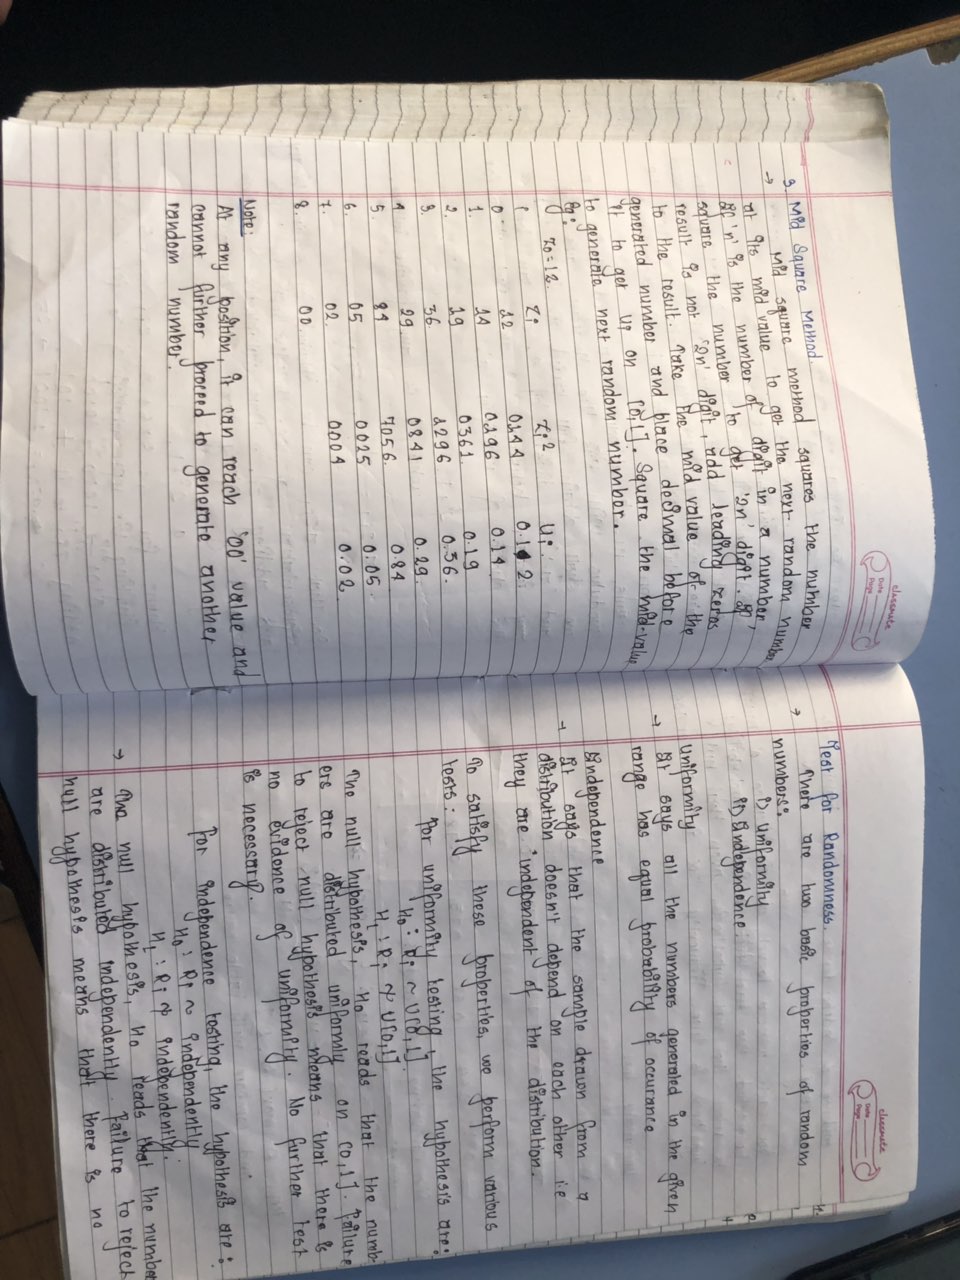 classmate
Date
Page
3. Mid Square Method.
→ Mid square method squares the number
at its mid value to get the next random number
If 'n' is the number of digit in a number,
square the number to get '2n' digit. If
result is not '2n' digit, add leading zeros
to the result. Take the mid value of the
generated number and place decimal before
it to get Ui on [0,1]. Square the mid-value
to generate next random number.
Eg:
Z0=12.
i Zi Zi² Ui
0 12 0144 0.12
1. 14 0196 0.14
2. 19 0361 0.19
3. 36 1296 0.36.
4 29 0841 0.29
5. 84 7056 0.84
6. 05 0025 0.05
7. 02 0004 0.02
8. 00
Note:
At any position, it can reach '00' value and
cannot further proceed to generate another
random number.
classmate
Date
Page
Test for Randomness.
→ There are two basic properties of random
numbers:
i) uniformity
ii) Independence
uniformity
→ It says all the numbers generated in the given
range has equal probability of occurance
Independence
→ It says that the sample drawn from a
distribution doesn't depend on each other ie
they are independent of the distribution.
To satisfy these properties, we perform various
tests:
For uniformity testing, the hypothesis are:
H0 : Ri ~ U[0,1]
H1 : Ri ≁ U[0,1]
The null hypothesis, H0 reads that the numb-
ers are distributed uniformly on [0,1]. Failure
to reject null hypothesis means that there is
no evidence of uniformity. No further test
is necessary.
For independence testing, the hypothesis are:
H0 : Ri ~ independently
H1 : Ri ≁ independently.
→ The null hypothesis, H0 reads that the number
are distributed independently. Failure to reject
null hypothesis means that there is no